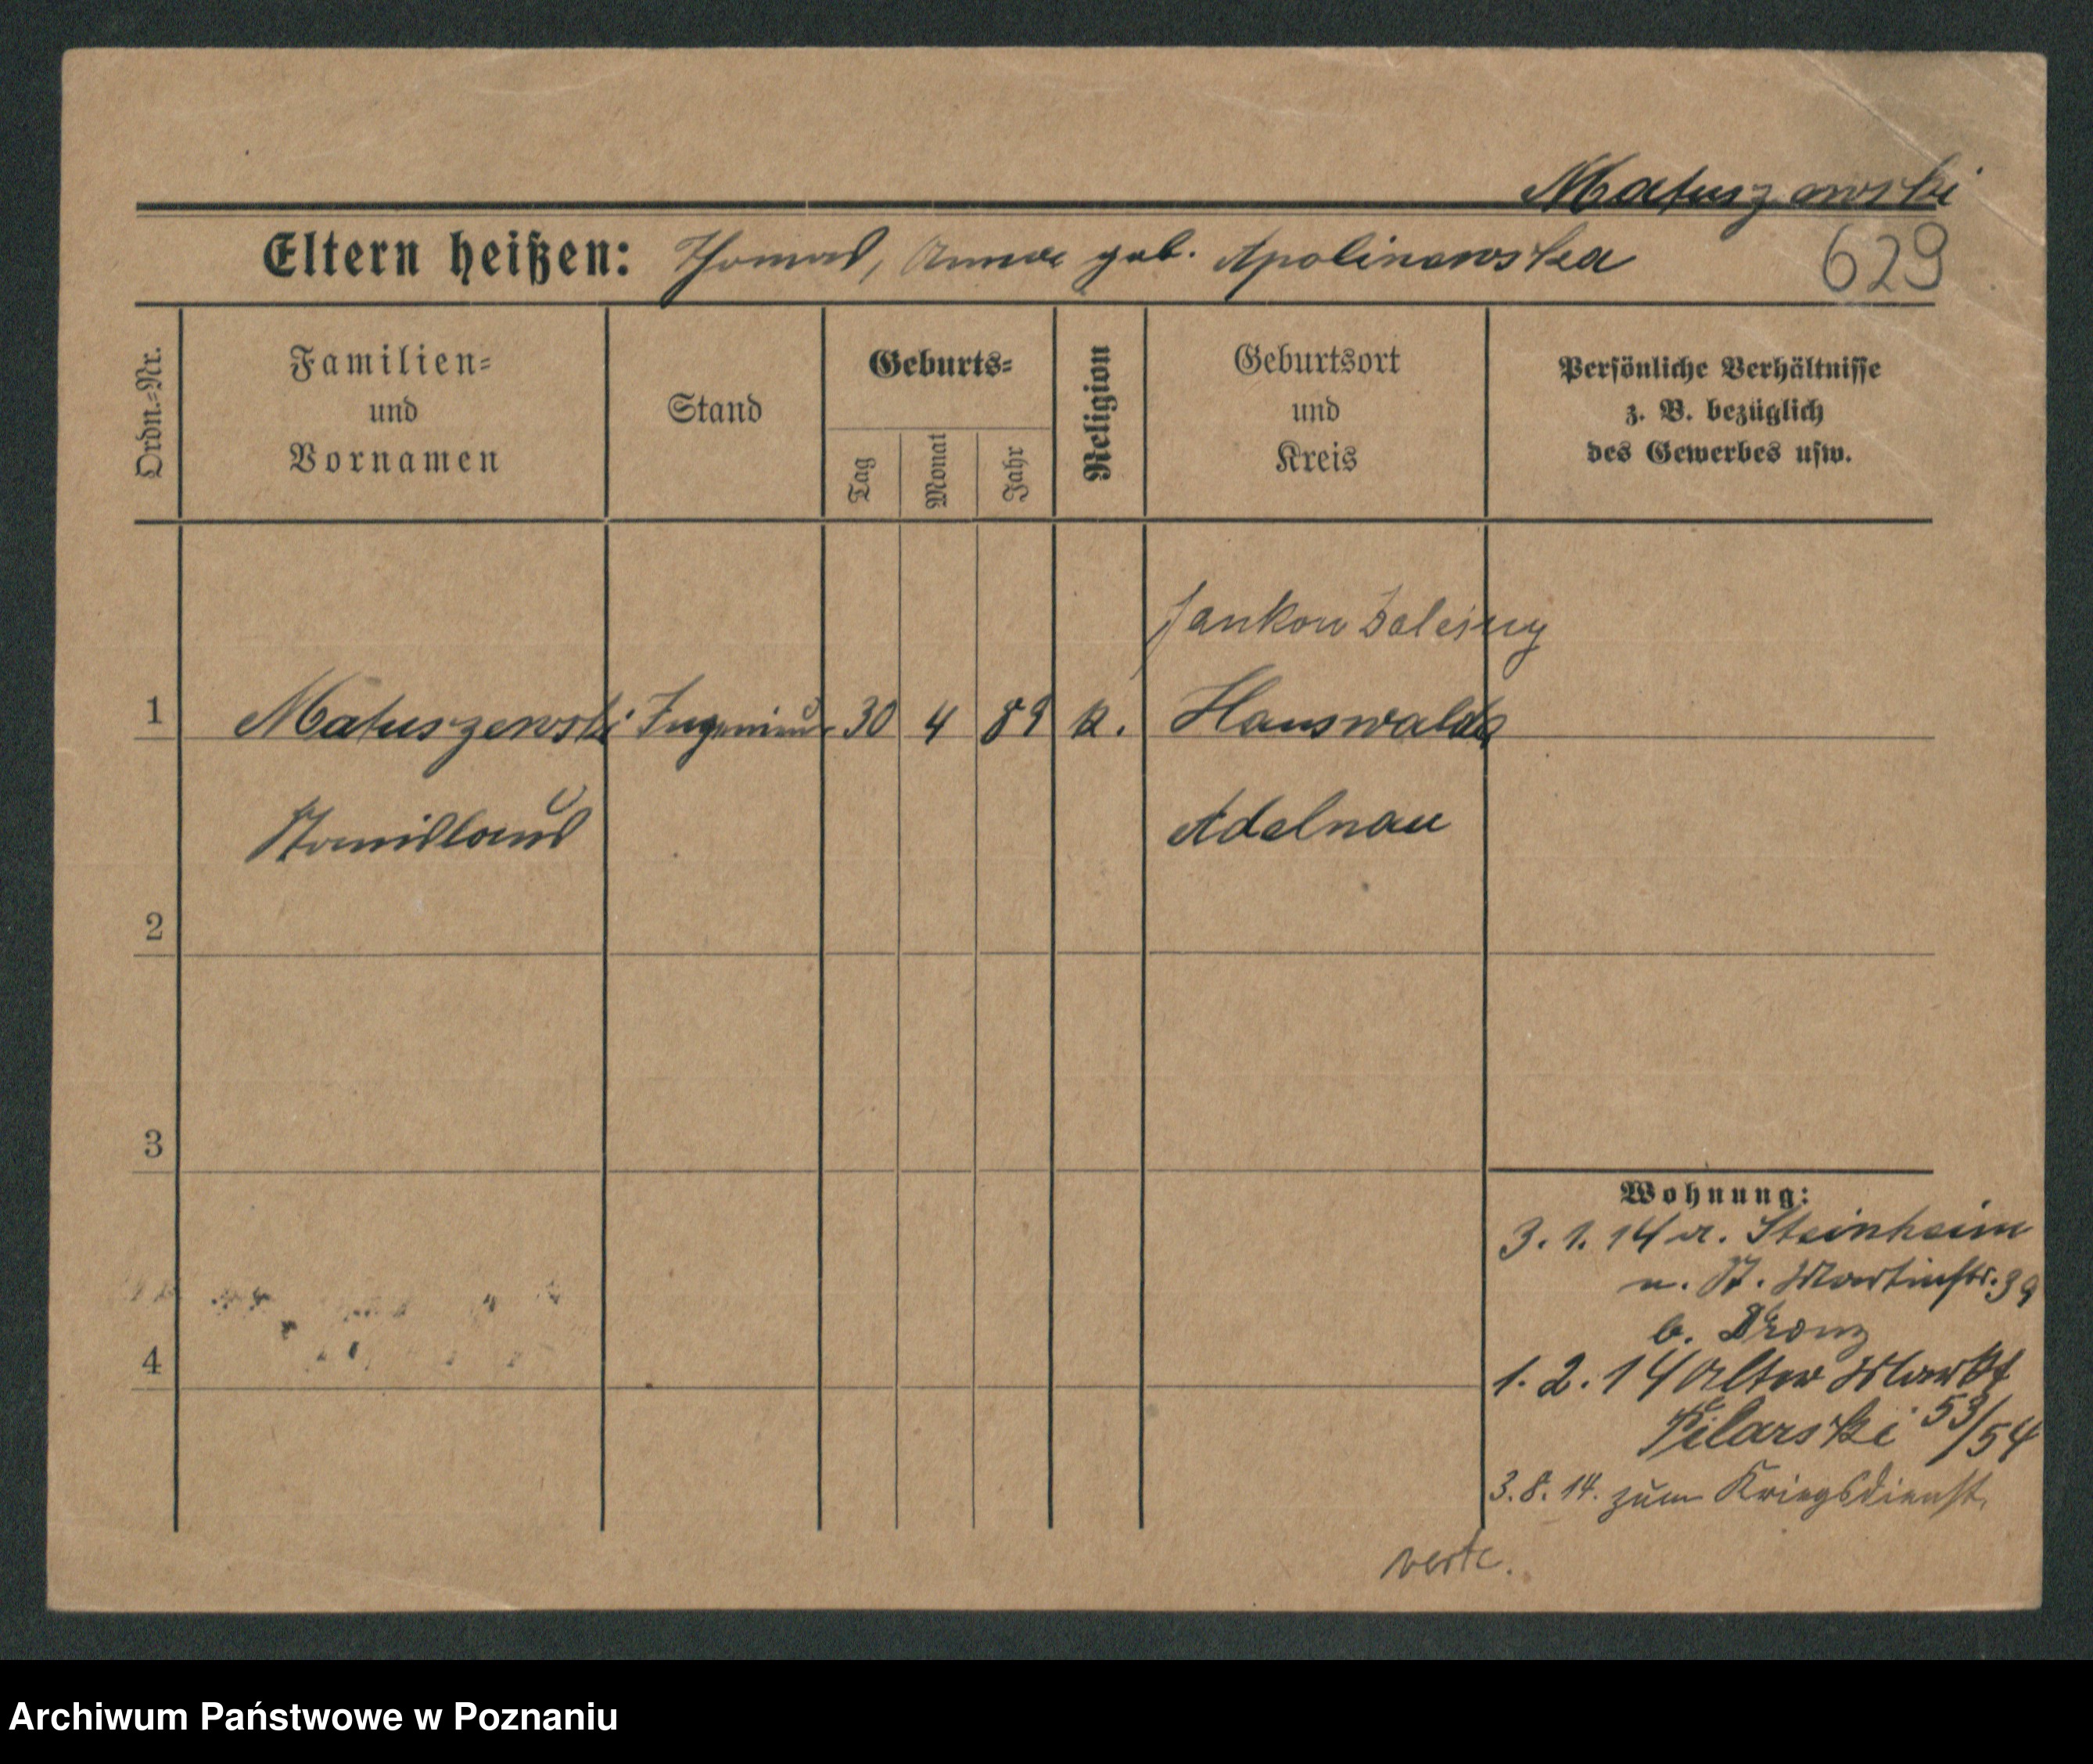 Matuszewski
Eltern heißen: Thomas, Anna geb. Apolinarska
629
Ordn.-Nr.
Familien-
und
Vornamen
Stand
Geburts-
Tag
Monat
Jahr
Religion
Geburtsort
und
Kreis
Persönliche Verhältnisse
z. B. bezüglich
des Gewerbes usw.
Jankow Zalesny
1 Matuszewski Ingenieur 30 4 89 k. Hanswalde
Stanislaus Adelnau
2
3
4
Wohnung:
3. 1. 14 a. Steinheim
n. St. Martinstr. 39
b.
1. 2. 14 Alter Markt
Pilarski 53/54
3. 8. 14. zum Kriegsdienst.
verte.
Archiwum Państwowe w Poznaniu